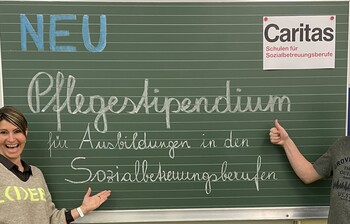 NEU
Caritas
Schulen für
Sozialbetreuungsberufe
Pflegestipendium
für Ausbildungen in den
Sozialbetreuungsberufen